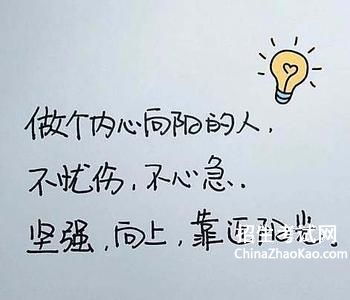 做个内心向阳的人，
不忧伤，不心急．
坚强，向上，靠近阳光．
招生考试网
ChinaZhaoKao.com